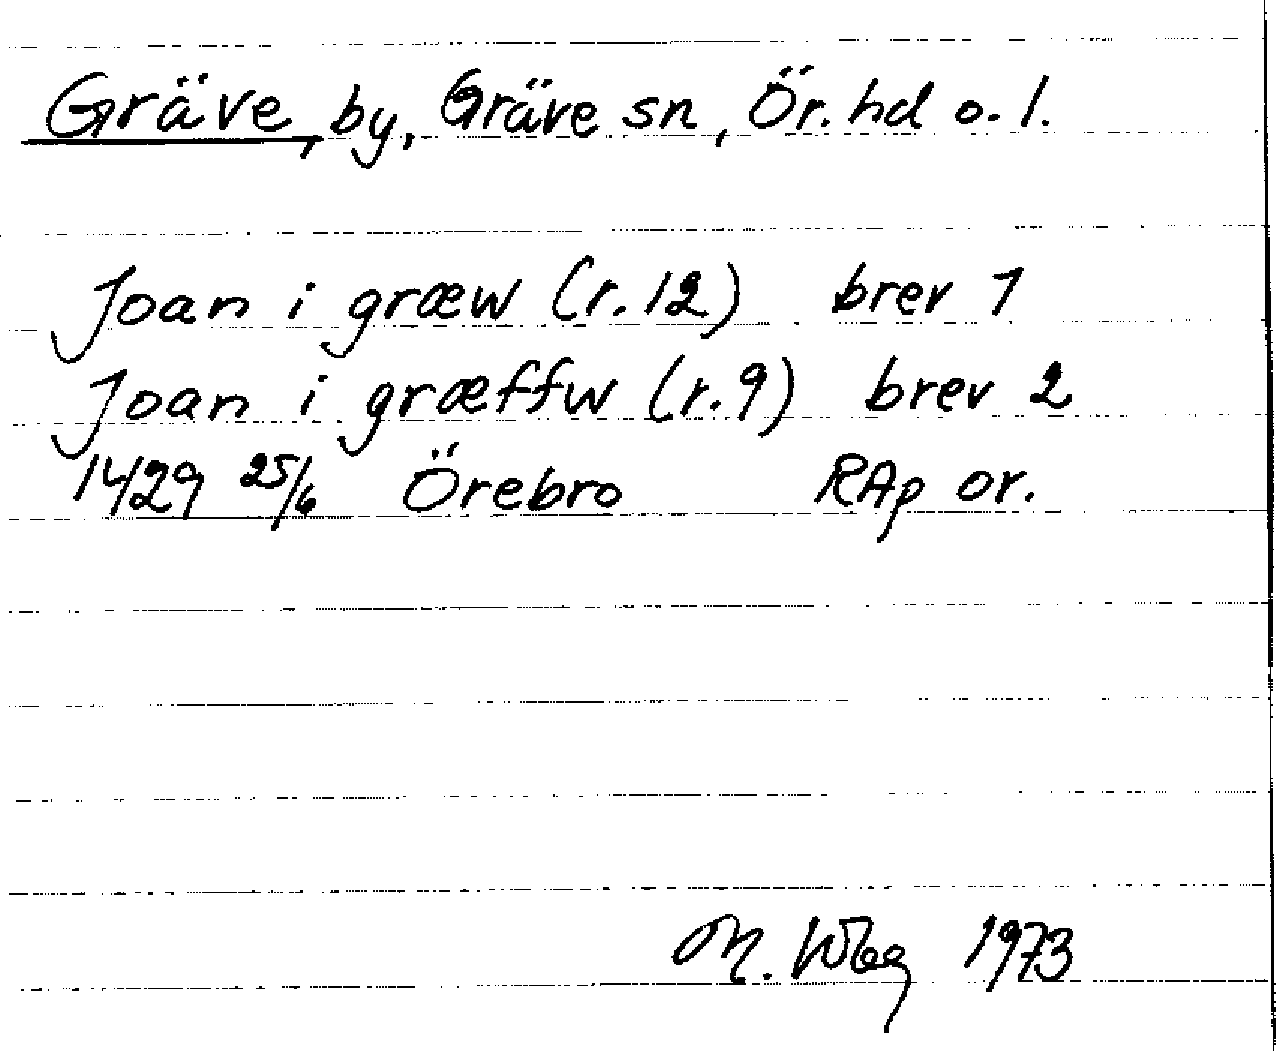 Gräve, by, Gräve sn, Ör. hd o. l.
Joan i græw (r. 12) brev 1
Joan i græffw (r. 9) brev 2
1429 25/6 Örebro RAp or.
M. Wbg 1973